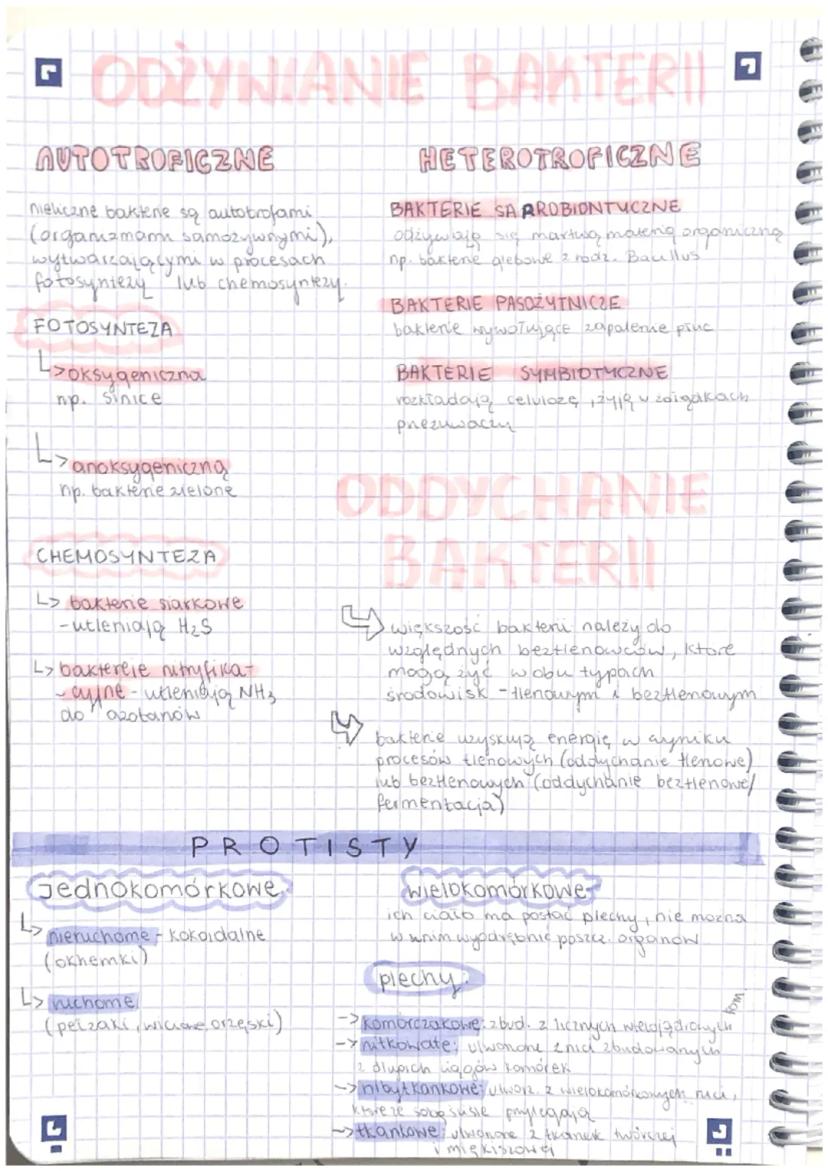 ODŻYWIANIE BAKTERII
AUTOTROFICZNE
nieliczne bakterie są autotrofami
(organizmami samożywnymi),
wytwarzającymi w procesach
fotosyntezy lub chemosyntezy.
FOTOSYNTEZA
↳ oksygeniczna
np. sinice
↳ anoksygeniczną
np. bakterie zielone
CHEMOSYNTEZA
↳ bakterie siarkowe
- utleniają H₂S
↳ baktereie nitryfika-
- cyjne - utleniają NH₃
do azotanów
HETEROTROFICZNE
BAKTERIE SAPROBIONTYCZNE
odżywiają się martwą materią organiczną
np. bakterie glebowe z rodz. Bacillus
BAKTERIE PASOŻYTNICZE
bakterie wywołujące zapalenie płuc
BAKTERIE SYMBIOTYCZNE
rozkładają celulozę, żyją w żołądkach
przeżuwaczy
ODDYCHANIE
BAKTERII
większość bakterii należy do
względnych beztlenowców, które
mogą żyć w obu typach
środowisk - tlenowym i beztlenowym
bakterie uzyskują energię w wyniku
procesów tlenowych (oddychanie tlenowe)
lub beztlenowych (oddychanie beztlenowe/
fermentacja)
PROTISTY
Jednokomórkowe
↳ nieruchome - kokoidalne
(okrzemki)
↳ ruchome
(pełzaki, wiciowe, orzęski)
wielokomórkowe
ich ciało ma postać plechy, nie można
w nim wyodrębnić poszcz. organów
plechy:
-> komórczakowe: zbud. z licznych wielojądrowych kom.
-> nitkowate: utworzone z nici zbudowanych
z długich ciągów komórek
-> nibytkankowe: utworz. z wielokomórkowych nici,
które ze sobą przylegają
-> tkankowe: utworzone z tkanek twórczej
i miękiszowej